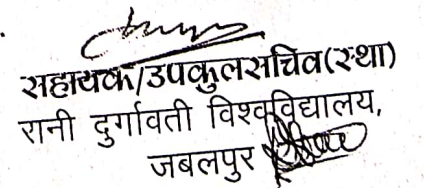 सहायक/उपकुलसचिव(स्था)
रानी दुर्गावती विश्वविद्यालय,
जबलपुर